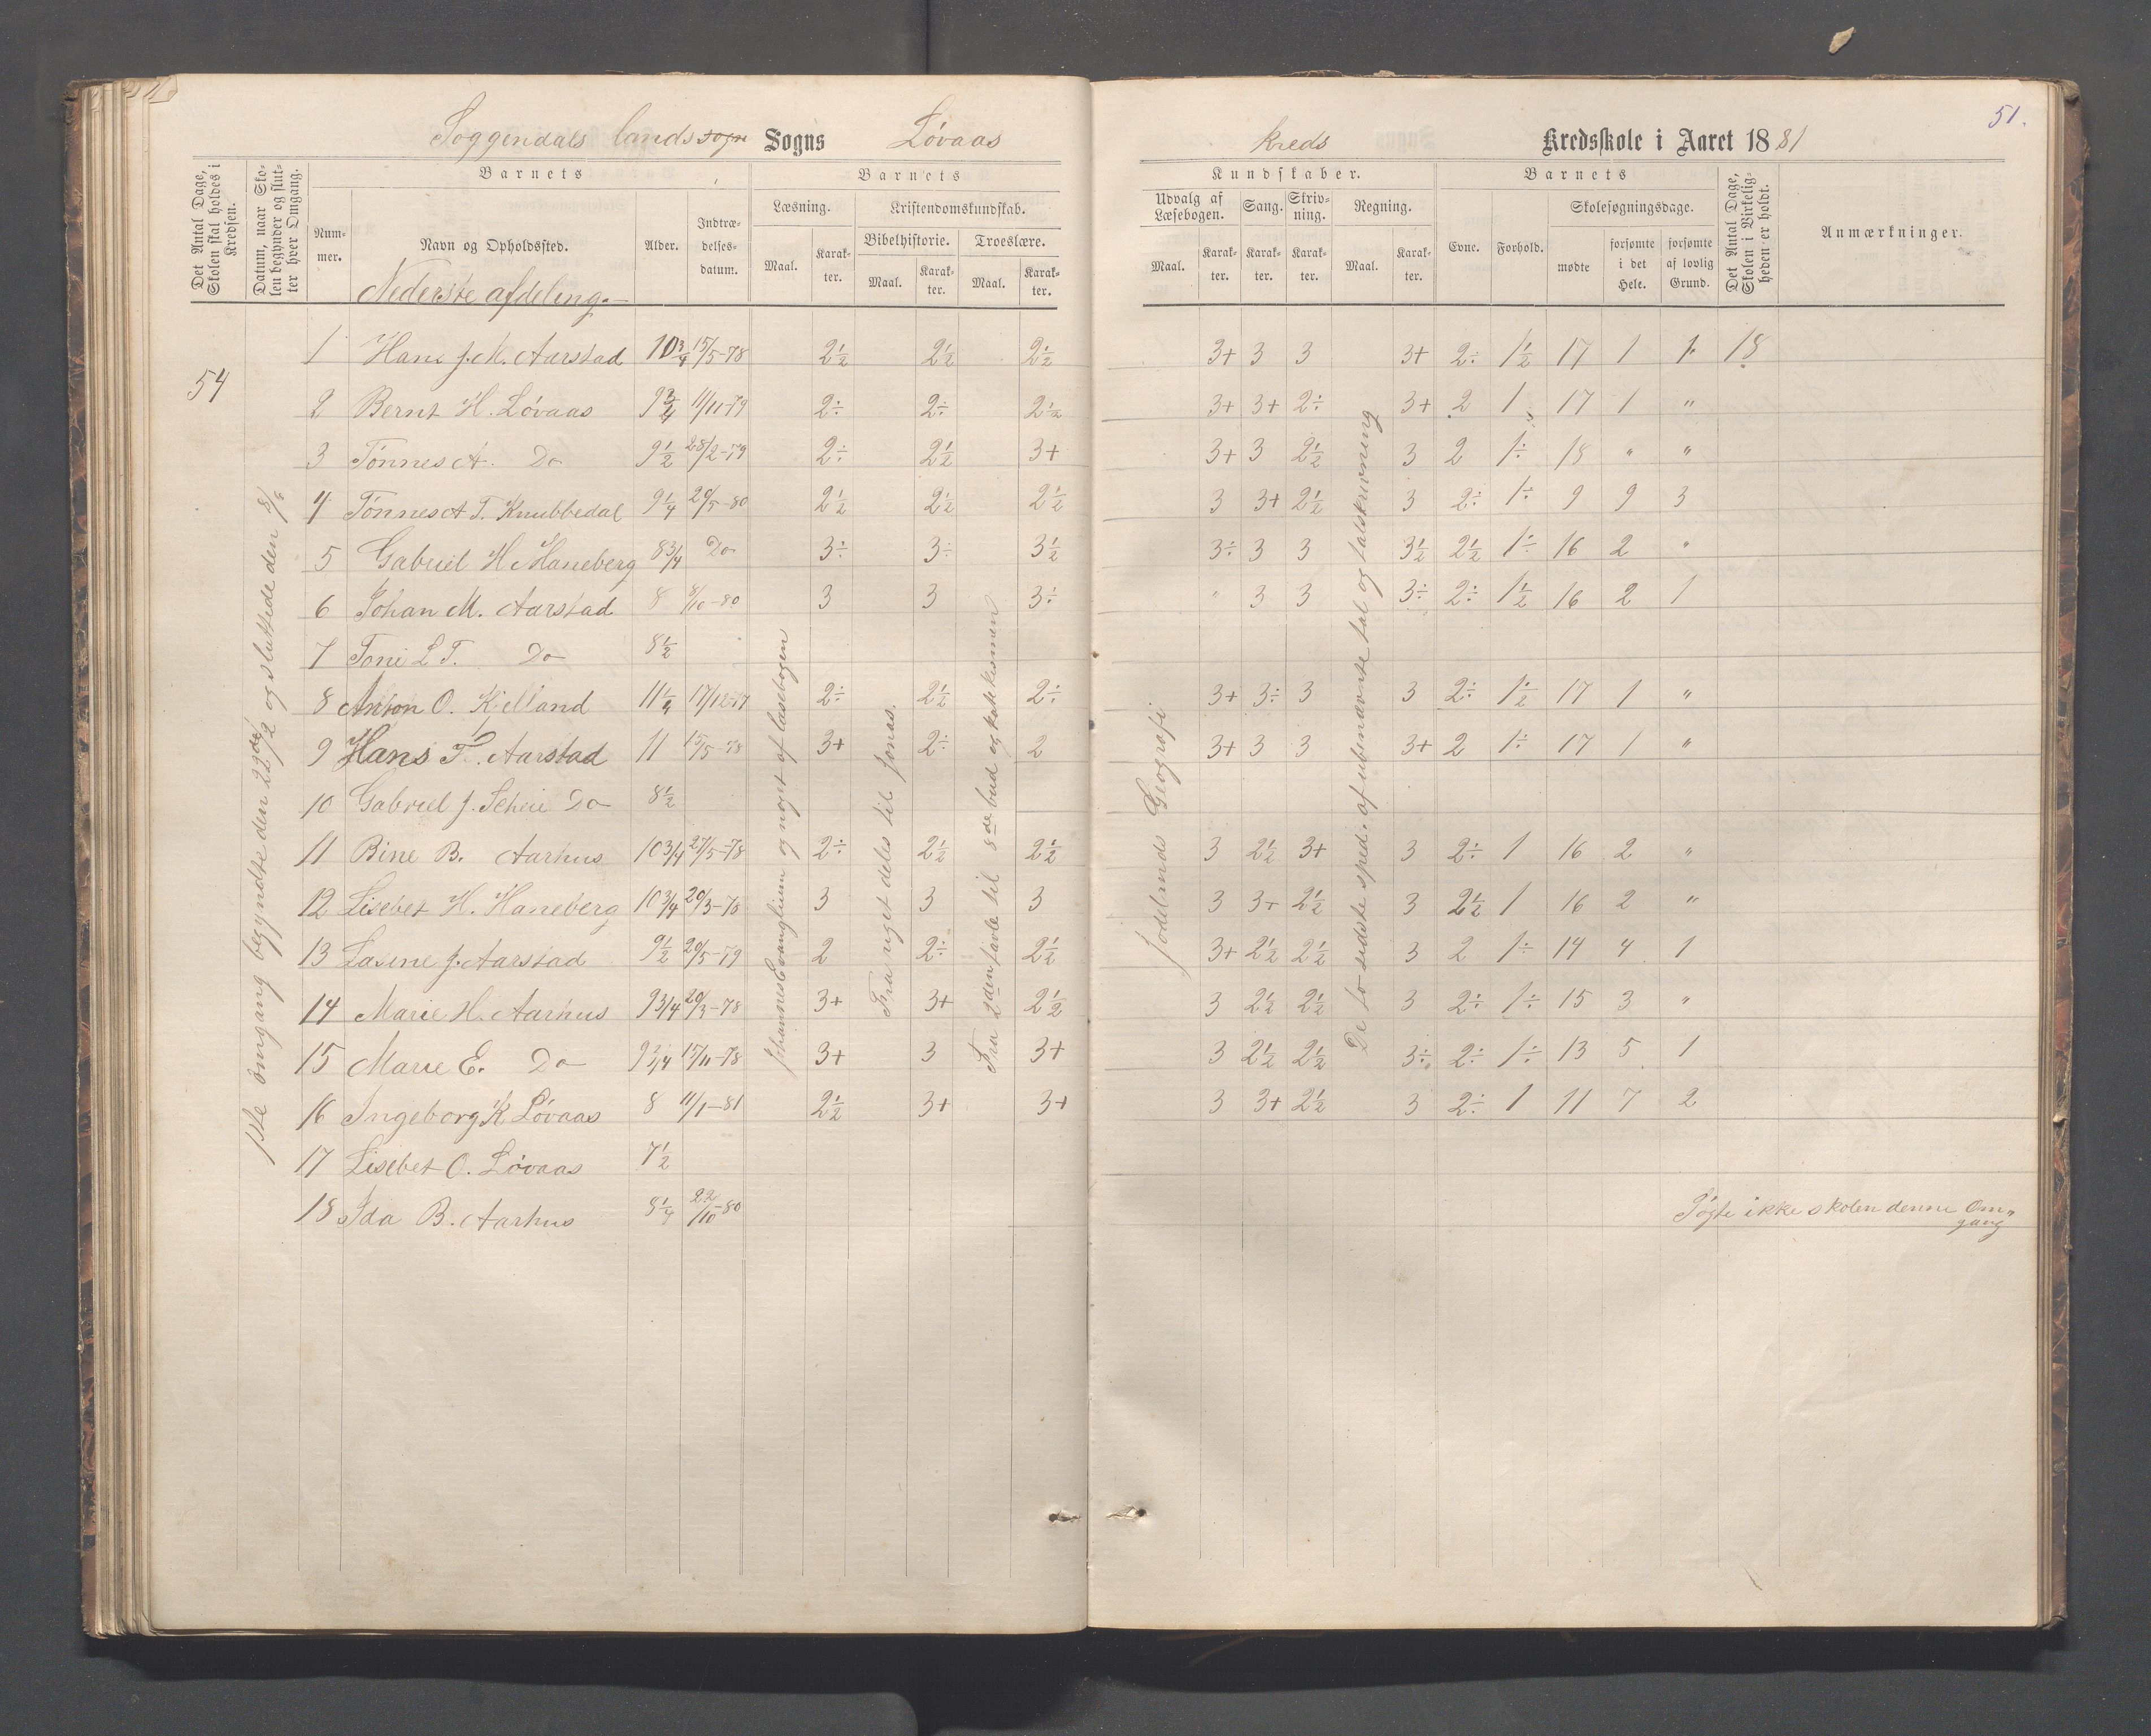 51.
Soggendals landssogn Sogns Løvaas kreds Kredsskole i Aaret 1881
Det Antal Dage, Skolen skal holdes i Kredsen.
Datum, naar Skolen begynder og slutter hver Omgang.
Barnets
Nummer. Navn og Opholdssted. Alder. Indtrædelsesdatum.
Barnets Kundskaber.
Læsning. Maal. Karakter.
Kristendomskundskab.
Bibelhistorie. Maal. Karakter.
Troeslære. Maal. Karakter.
Udvalg af Læsebogen. Maal. Karakter.
Sang. Karakter.
Skrivning. Karakter.
Regning. Maal. Karakter.
Barnets
Evne. Forhold.
Skolesøgningsdage.
mødte forsømte i det Hele. forsømte af lovlig Grund.
Det Antal Dage, Skolen i Virkeligheden er holdt.
Anmærkninger.
Nederste afdeling.
54
1ste omgang begyndte den 22de/2 og sluttede den
Johannes Evanglium og noget af læsebogen
Fra riget deles til Jonas.
Fra 2den tavle til 8de bud og katekismen
Jodelmds Geografi
De fo sidste sped. af ubenævnte tal og talskrivning
1 Hans J. M. Aarstad 10 3/4 15/5-78 2½ 2½ 2½ 3+ 3 3 3+ 2÷ 1½ 17 1 1 18
2 Bernt H. Løvaas 9 3/4 11/11-79 2÷ 2÷ 2½ 3+ 3+ 2÷ 3+ 2 1 17 1 "
3 Tønnes A. Do 9½ 28/2-79 2÷ 2½ 3+ 3+ 3 2½ 3 2 1÷ 18 " "
4 Tønnes A T. Knubbedal 9¼ 20/5-80 2½ 2½ 2½ 3 3+ 2½ 3 2÷ 1÷ 9 9 3
5 Gabriel H Haneberg 8 3/4 Do 3÷ 3÷ 3½ 3÷ 3 3 3½ 2½ 1÷ 16 2 "
6 Johan M. Aarstad 8 8/10-80 3 3 3÷ " 3 3 3÷ 2÷ 1½ 16 2 1
7 Toni L T. Do 8½
8 Anton O. Kjelland 11¼ 17/12-77 2÷ 2½ 2÷ 3+ 3÷ 3 3 2÷ 1½ 17 1 "
9 Hans T. Aarstad 11 15/5-78 3+ 2÷ 2 3+ 3 3 3+ 2 1÷ 17 1 "
10 Gabriel J. Scheie Do 8½
11 Bine B. Aarhus 10 3/4 27/5-78 2÷ 2½ 2½ 3 2½ 3+ 3 2÷ 1 16 2 "
12 Lisebet H. Haneberg 10 3/4 20/3-78 3 3 3 3 3+ 2½ 3 2½ 1 16 2 "
13 Lasine J. Aarstad 9½ 20/5-79 2 2÷ 2½ 3+ 2½ 2½ 3 2 1÷ 14 4 1
14 Marie H. Aarhus 9 3/4 20/3-78 3+ 3+ 2½ 3 2½ 2½ 3 2÷ 1÷ 15 3 "
15 Marie E. Do 9 3/4 15/11-78 3+ 3 3+ 3 2½ 2½ 3÷ 2÷ 1÷ 13 5 1
16 Ingeborg K Løvaas 8 11/1-81 2½ 3+ 3+ 3 3+ 2½ 3 2÷ 1 11 7 2
17 Lisebet O. Løvaas 7½
18 Ida B. Aarhus 8¼ 22/10-80 Søgte ikke skolen denne Om„
gang